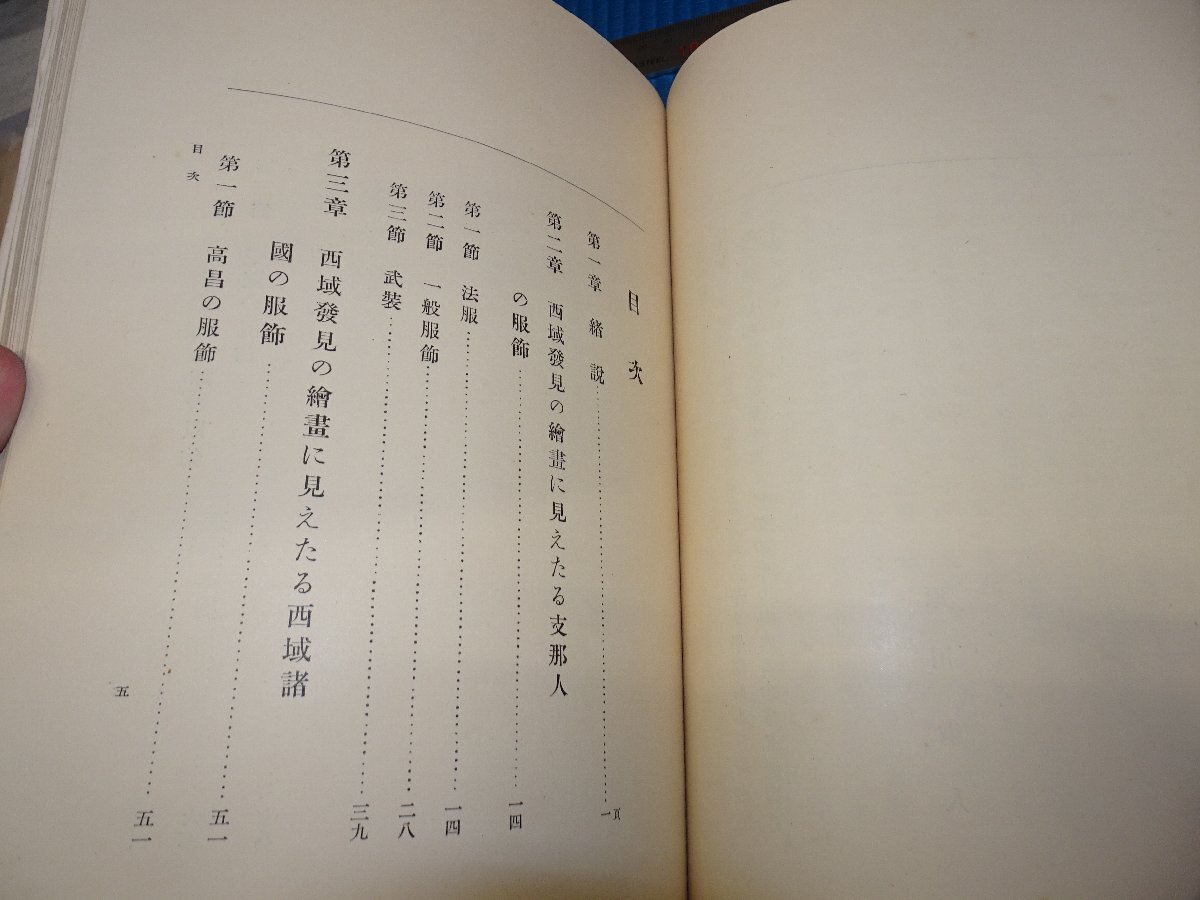 目次
頁
第一章 緒說……一
第二章 西域發見の繪畫に見えたる支那人
の服飾……一四
第一節 法服……一四
第二節 一般服飾……二八
第三節 武裝……三九
第三章 西域發見の繪畫に見えたる西域諸
國の服飾……五一
第一節 高昌の服飾……五一
目次
五